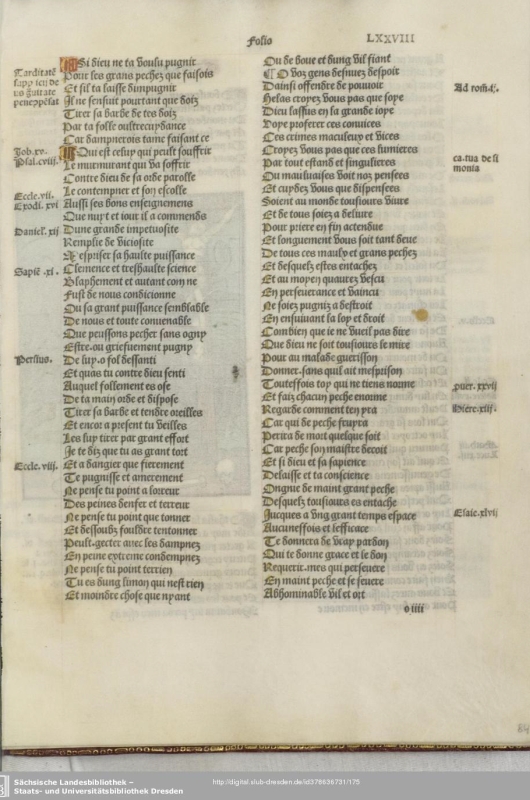 Folio LXXVIII
Tarditate
Job.xv.
Psal.cviij.
Eccle.vii.
Exodi.xvi
Daniel.xij
Sapie .xi.
Persius.
Eccle.viij.
Si dieu ne ta voulu pugnir
Pour les grans pechez que faisois
Et sil ta laisse dimpugnir
Il ne sensuit pourtant que doiz
Tirer sa barbe de tes doiz
Par ta folle oultrecuydance
Car dampnerois tame faisant ce
Qui est celuy qui peult souffrir
Le murmurant qui va soffrir
Contre dieu de sa orde parolle
Le contempner et son escolle
Aussi ses bons enseignemens
Que nuyt et iour il a commends
Dune grande impetuosite
Remplie de viciosite
Mespriser sa haulte puissance
Clemence et treshaulte science
Blasphement et autant comme
Fust de nous condicionne
Ou sa grant puissance semblable
De nous et toute conuenable
Que peussons pecher sans ogny
Estre.ou griefuement pugny
De luy.o fol dessanti
Et quas tu contre dieu senti
Auquel follement es ose
De ta main orde et dispose
Tirer sa barbe et tendre oreilles
Et encor a present tu veilles
Les luy tirer par grant effort
Je te diz que tu as grant tort
Et a dangier que fierement
Te pugnisse et amerement
Ne pense tu point a lorreur
Des peines denfer et terreur
Ne pense tu point que tonner
Et dessoubz fouldre tentonner
Peult.gecter auec les dampnez
En peine extreme condempnez
Ne pense tu point terrien
Tu es dung limon qui nest rien
Et moindre chose que nyant
Ou de boue et dung vil fiant
O voz gens desnuez despoir
Dainsi offendre de pouuoir
Helas croyez vous pas que soye
Dieu lassus en la grande ioye
Voye proferer ces conuices
Ces crimes maculeux et vices
Croyez vous pas que ces lumieres
Par tout estand et singulieres
Ou mauluaises voit noz pensees
Et cuydez vous que dispensees
Soient au monde tousiours viure
Et de tous soiez a deliure
Pour priere en fin actendue
Et longuement vous soit tant deue
De tous ces maulx et grans pechez
Et desquelz estes entachez
Et au moyen quaurez vescu
En perseuerance et vaincu
Ne soiez pugniz a destroit
En ensuiuant la loy et droit
Combien que ie ne vueil pas dire
Que dieu ne soit tousiours le mire
Pour au malade guerison
Donner.sans quil ait mesprison
Toutessfois toy qui ne tiens norme
Et faiz chacun peche enorme
Regarde comment ten yra
Car qui de peche fruyra
Perira de mort quelque soit
Car peche son maistre decoit
Et si dieu et sa sapience
Delaisse et ta conscience
Ongnie de maint grant peche
Desquelz tousiours es entache
Jucques a vng grant temps espace
Aucuneffois et sefficace
Te donnera de vray pardon
Qui te donne grace et le don
Requerir.mes qui perseuere
En maint peche et se seuere
Abhominable vil et ort
Ad roma.
ca.rua de si
monia
puer.xxvij
Hiere.xiij.
Esaie.xlvij
o iiii
Sächsische Landesbibliothek –
Staats- und Universitätsbibliothek Dresden
http://digital.slub-dresden.de/id376636731/175